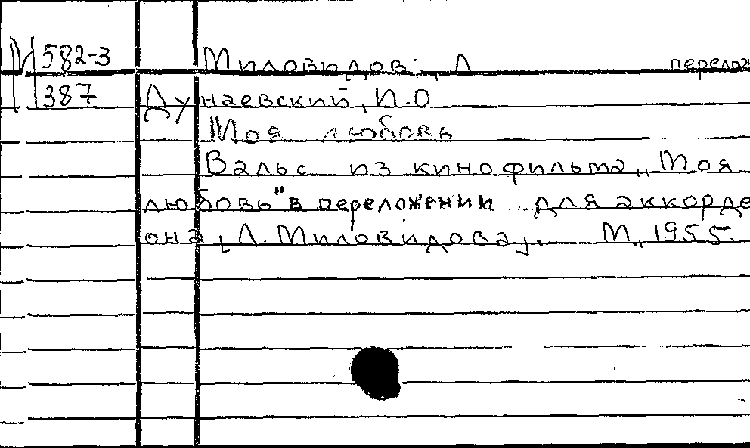 М 582-3 Миловидов, Л перелож
387 Дунаевский, И.О
Моя любовь
Вальс из кинофильма „Моя
любовь" в переложении для аккорде
она [Л. Миловидова]. М., 1955